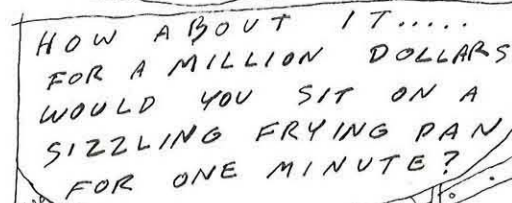 HOW ABOUT IT.....
FOR A MILLION DOLLARS
WOULD YOU SIT ON A
SIZZLING FRYING PAN
FOR ONE MINUTE?